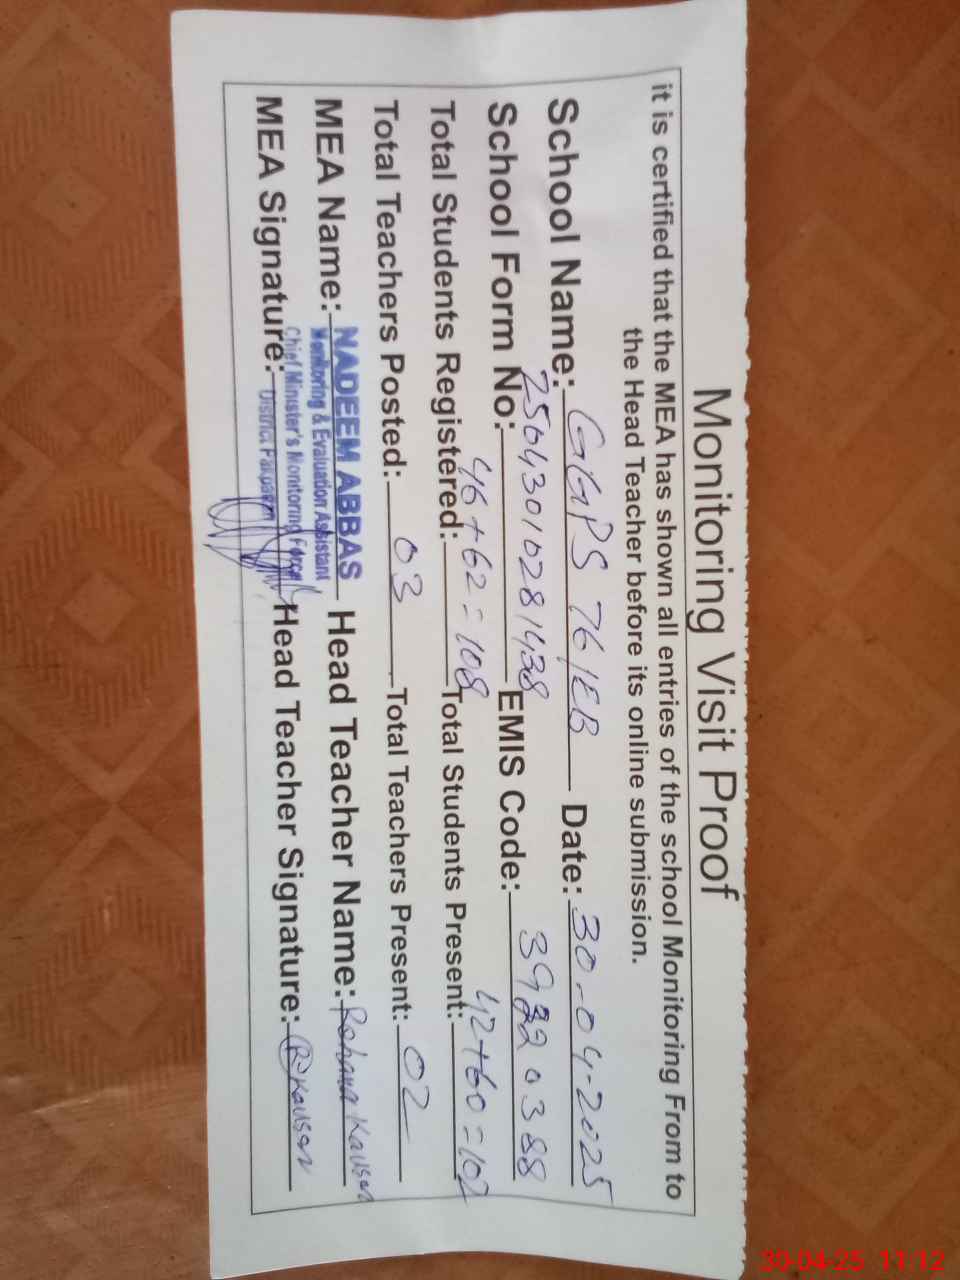 Monitoring Visit Proof
it is certified that the MEA has shown all entries of the school Monitoring From to
the Head Teacher before its online submission.
School Name: GGPS 76/EB Date: 30-04-2025
School Form No: 25043010281438 EMIS Code: 39220388
Total Students Registered: 46+62=108 Total Students Present: 42+60=102
Total Teachers Posted: 03 Total Teachers Present: 02
MEA Name: NADEEM ABBAS Head Teacher Name: Rehana Kausar
Monitoring & Evaluation Assistant
Chief Minister's Monitoring Force
District Pakpattan
MEA Signature: Head Teacher Signature: R Kausar
30-04-25 11:12